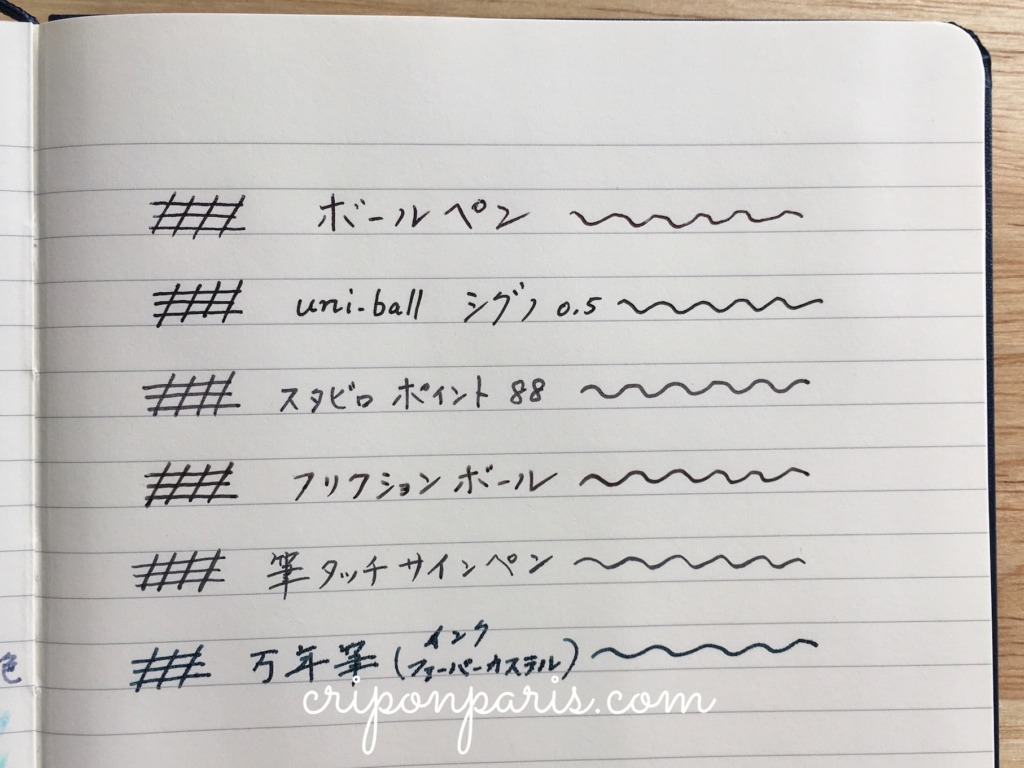 ボールペン
uni-ball シグノ 0.5
スタビロ ポイント 88
フリクションボール
筆タッチサインペン
万年筆(インク ファーバーカステル)
色
criponparis.com